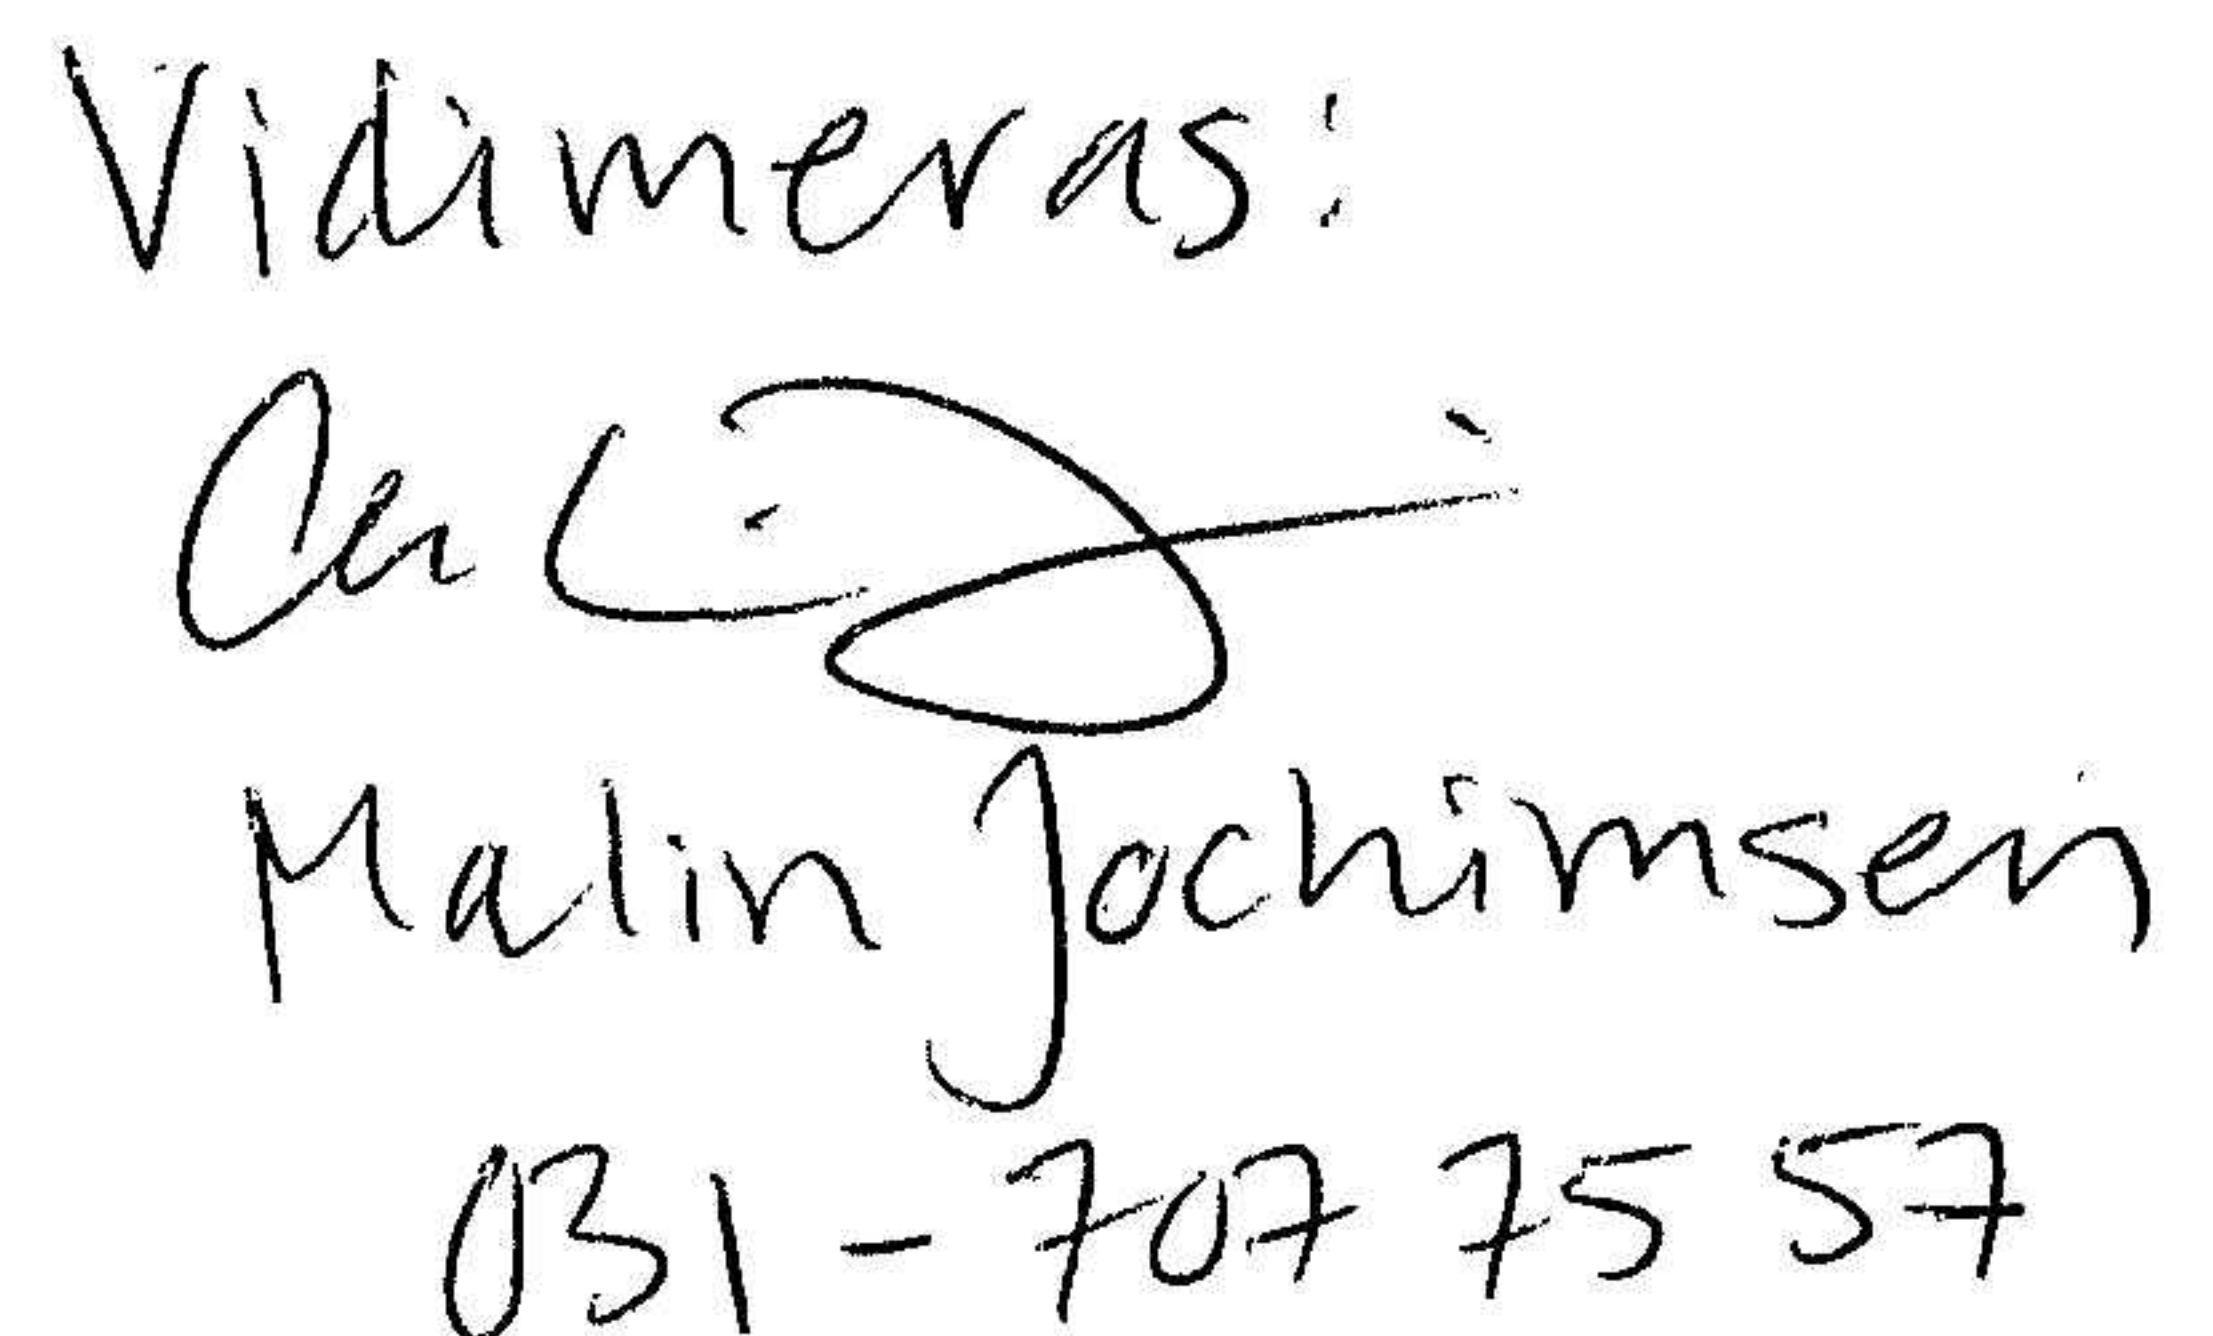 Vidimeras:
Malin Jochimsen
031-707 75 57